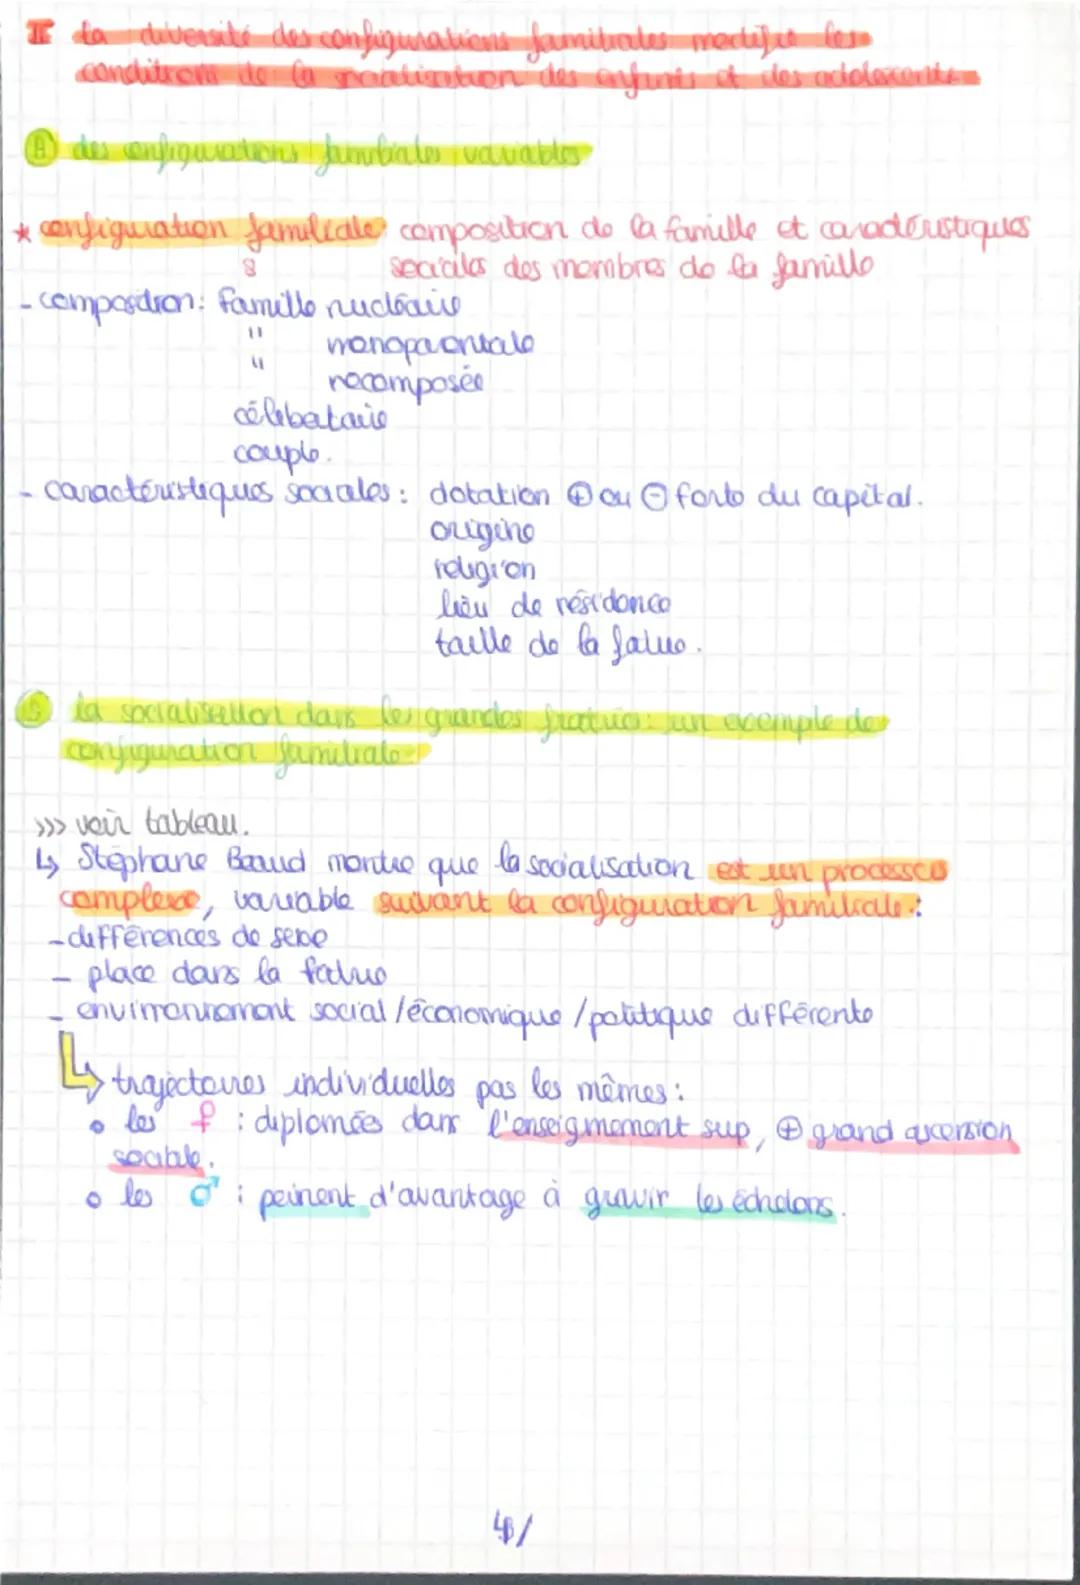 II la diversité des configurations familiales modifie les
conditions de la socialisation des enfants et des adolescents
A des configurations familiales variables
* configuration familiale composition de la famille et caractéristiques
: sociales des membres de la famille
- composition : famille nucléaire
" monoparentale
" recomposée
célibataire
couple.
- caractéristiques sociales : dotation ⊕ ou ⊖ forte du capital.
origine
religion
lieu de résidence
taille de la
B la socialisation dans les grandes fratries : un exemple de
configuration familiale
>>> voir tableau.
↳ Stéphane Beaud montre que la socialisation est un processus
complexe, variable suivant la configuration familiale :
- différences de sexe
- place dans la
- environnement social / économique / politique différente
↳ trajectoires individuelles pas les mêmes :
• les ♀ : diplomées dans l'enseignement sup, ⊕ grand ascension
sociale.
• les ♂ : peinent d'avantage à gravir les échelons.